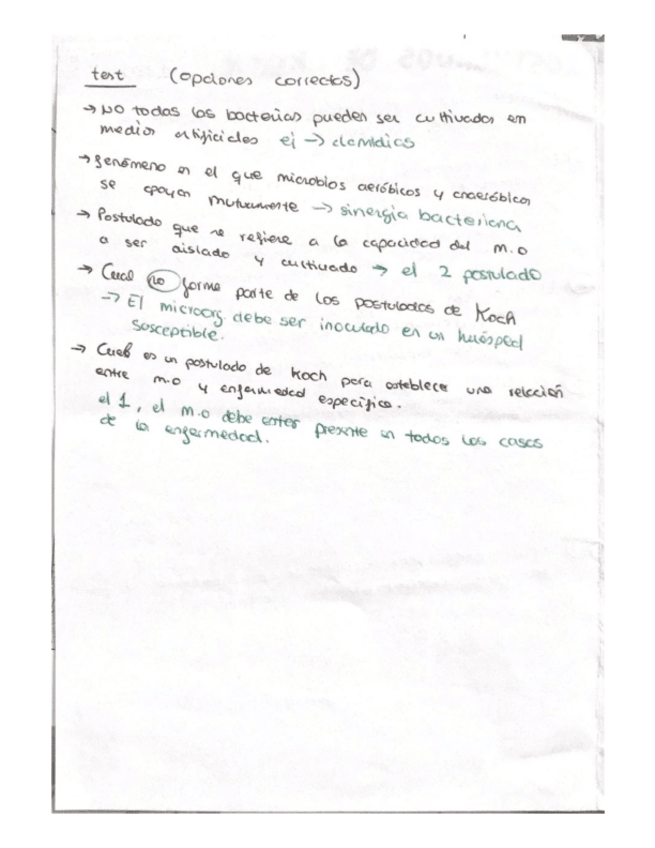 test (opciones correctas)
→ NO todas las bacterias pueden ser cultivadas en
medios artificiales ej → clamidias
→ fenómeno en el que microbios aeróbicos y anaeróbicos
se apoyan mutuamente → sinergia bacteriana
→ Postulado que se refiere a la capacidad del m.o
a ser aislado y cultivado → el 2 postulado
→ Cual no forma parte de los postulados de Koch
→ El microorg debe ser inoculado en un huésped
susceptible.
→ Cual es un postulado de Koch para establecer una relación
entre m.o y enfermedad específica.
el 1, el m.o debe estar presente en todos los casos
de la enfermedad.